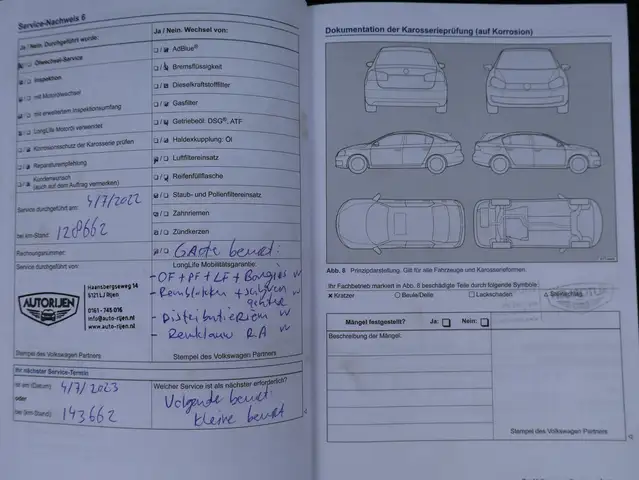 Service-Nachweis 6
Ja / Nein: Durchgeführt wurde:
Ölwechsel-Service
Inspektion
mit Motorölwechsel
mit erweitertem Inspektionsumfang
LongLife Motoröl verwendet
Korrosionsschutz der Karosserie prüfen
Reparaturempfehlung
Kundenwunsch
(auch auf dem Auftrag vermerken)
Service durchgeführt am: 4/7/2022
bei km-Stand: 128662
Rechnungsnummer:
Service durchgeführt von:
AUTORIJEN
Haansbergseweg 14
5121 LJ Rijen
0161 - 745 016
info@auto-rijen.nl
www.auto-rijen.nl
Stempel des Volkswagen Partners
Ja / Nein: Wechsel von:
AdBlue®
Bremsflüssigkeit
Dieselkraftstofffilter
Gasfilter
Getriebeöl: DSG®, ATF
Haldexkupplung: Öl
Luftfiltereinsatz
Reifenfüllflasche
Staub- und Pollenfiltereinsatz
Zahnriemen
Zündkerzen
Grote beurt:
LongLife Mobilitätsgarantie:
- OF + PF + LF + Bougies
- Remblokken + schijven
- Distributieriem
- Remklauw R.A
Stempel des Volkswagen Partners
Ihr nächster Service-Termin
ist am (Datum) 4/7/2023
oder
bei (km-Stand): 143662
Welcher Service ist als nächster erforderlich?
Volgende beurt:
kleine beurt
Dokumentation der Karosserieprüfung (auf Korrosion)
Abb. 6 Prinzipdarstellung. Gilt für alle Fahrzeuge und Karosserieformen.
Ihr Fachbetrieb markiert in Abb. 6 beschädigte Teile durch folgende Symbole:
X Kratzer O Beule/Delle □ Lackschaden △ Steinschlag
Mängel festgestellt? Ja: Nein:
Beschreibung der Mängel.
Stempel des Volkswagen Partners